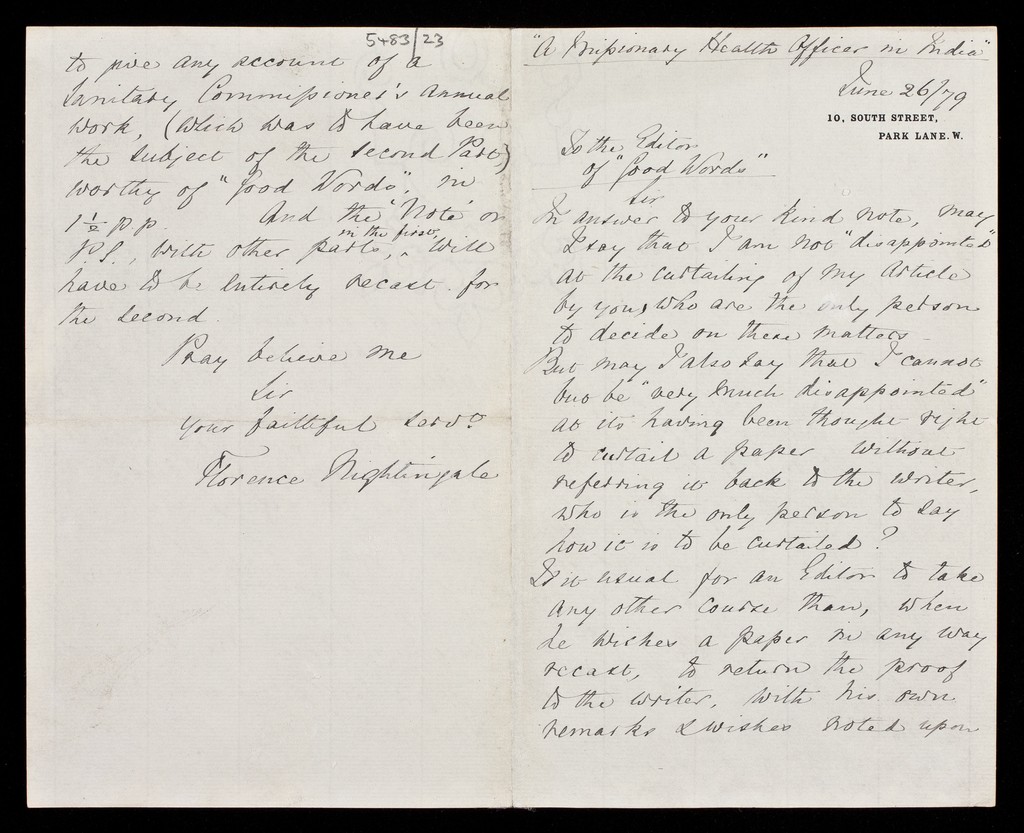 "A Missionary Health Officer in India"
June 26/79
10, SOUTH STREET,
PARK LANE. W.
To the Editor
of "Good Words"
Sir
In answer to your kind note, may
I say that I am not "disappointed"
at the curtailing of my Article
by you, who are the only person
to decide on these matters
But may I also say that I cannot
but be "very much disappointed"
at its having been thought right
to curtail a paper without
referring it back to the writer,
who is the only person to say
how it is to be curtailed?
Is it usual for an Editor to take
any other course than, when
he wishes a paper in any way
recast, to return the proof
to the writer, with his own
remarks & wishes noted upon
5483/23
to give any account of a
Sanitary Commissioner's annual
work, (which was to have been
the subject of the second Part)
worthy of "Good Words", in
1½ p.p. And the 'Note' or
P.S., with other parts, in the first, will
have to be entirely recast for
the second.
Pray believe me
Sir
your faithful servt
Florence Nightingale